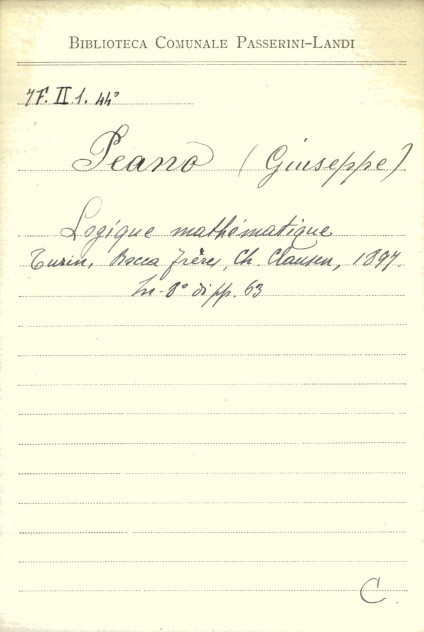 BIBLIOTECA COMUNALE PASSERINI-LANDI
7F. II. 1. 44°
Peano (Giuseppe)
Logique mathématique
Turin, Bocca frères, Ch. Clausen, 1897.
In-8° di pp. 63
C.